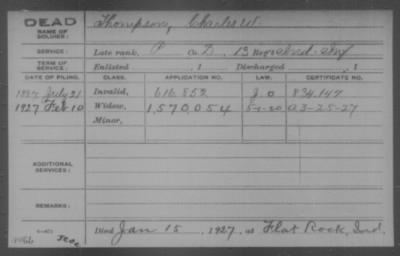 DEAD
NAME OF SOLDIER:
Thompson, Charles W.
SERVICE:
Late rank, P Co. D, 13 Reg't Ind. Inf
TERM OF SERVICE:
Enlisted , 1 Discharged , 1
DATE OF FILING. CLASS. APPLICATION NO. LAW. CERTIFICATE NO.
1887 July 21 Invalid, 616.852 G.O 834.147
1927 Feb 10 Widow, 1,570,054 5-1-20 A 3-25-27
Minor,
ADDITIONAL SERVICES:
REMARKS:
Died Jan 15, 1927, at Flat Rock, Ind.